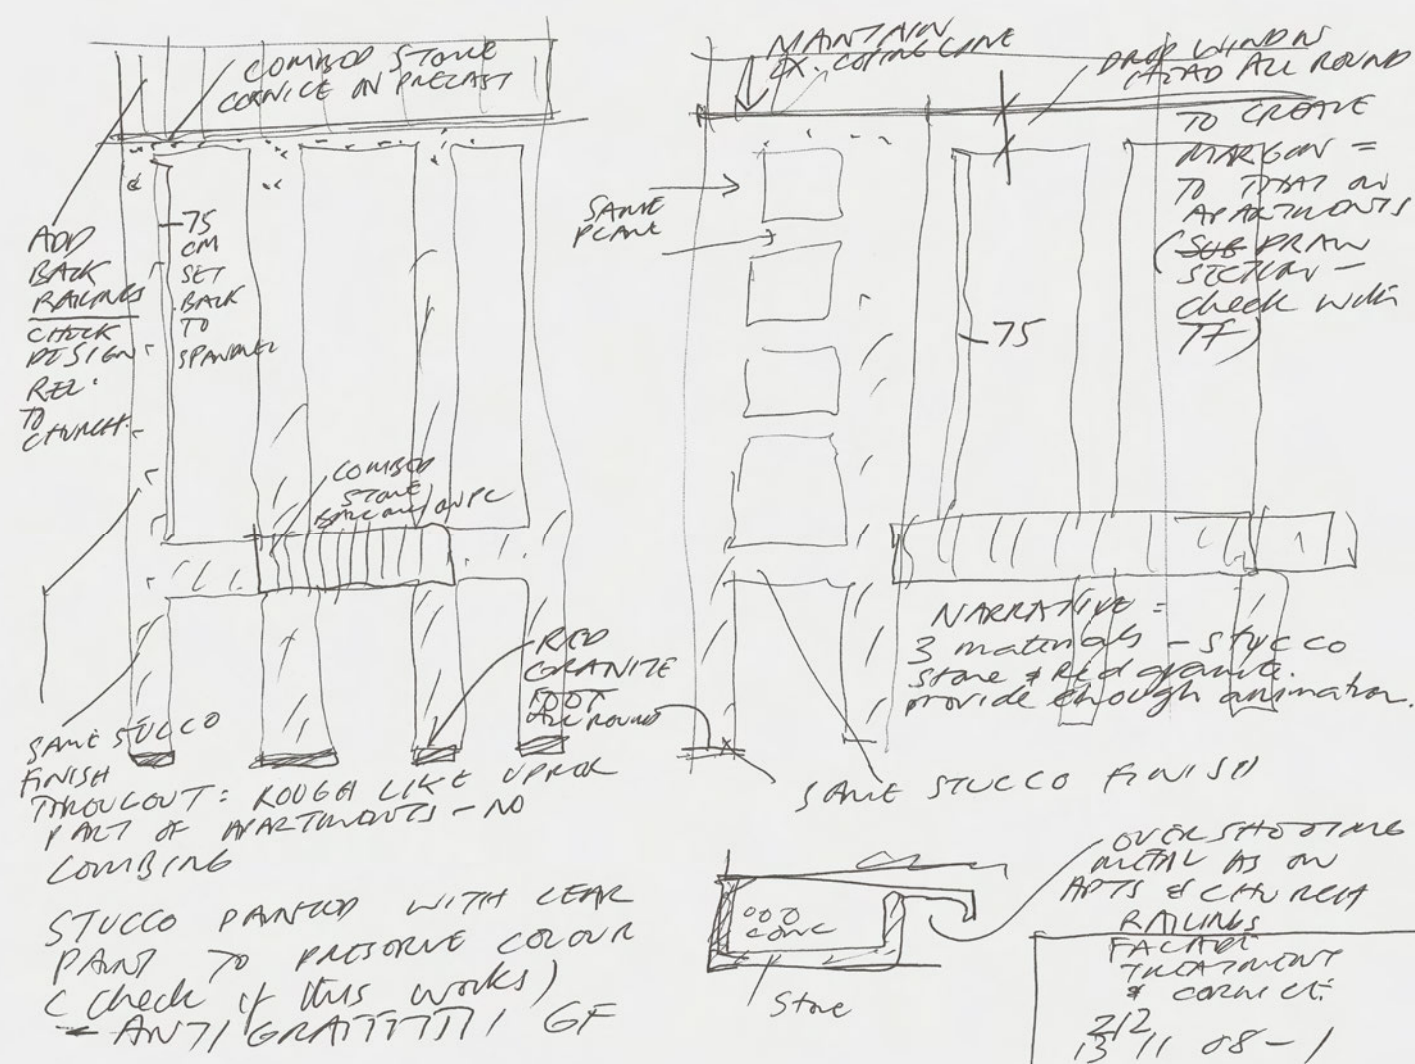 COMBED STONE
CORNICE ON PRECAST
ADD
BACK
RAILINGS
CHECK
DESIGN
REL.
TO
CHURCH.
75
CM
SET
BACK
TO
SPANDREL
COMBED
STONE
ON PC
RED
GRANITE
FOOT
ALL ROUND
SAME STUCCO
FINISH
THROUGOUT: ROUGH LIKE UPPER
PART OF APARTMENTS - NO
COMBING
STUCCO PAINTED WITH CLEAR
PAINT TO PRESERVE COLOUR
(check if this works)
- ANTI GRAFFITTI GF
MAINTAIN
EX. COPING LINE
DROP WINDOW
HEAD ALL ROUND
TO CREATE
MARGIN =
TO THAT ON
APARTMENTS
(SUB DRAW
SECTION -
check with
TF)
SAME
PLANE
75
NARRATIVE =
3 materials - stucco
stone & Red granite.
provide enough animation.
SAME STUCCO FINISH
OVERSHOOTING
METAL AS ON
APTS & CHURCH
RAILINGS
CONC
Stone
FACADE
TREATMENT
& CORNICE
212
13 11 08 - 1